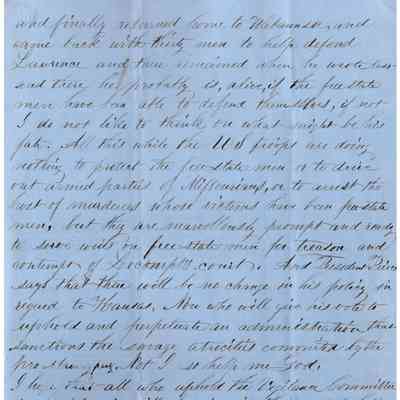 and finally returned home to Wabaunsee, and
came back with thirty men to help defend
Lawrence and there remained when he wrote last
and there he probably is, alive, if the free state
men have been able to defend themselves, if not
I do not like to think on what might be his
fate. All this while the U S troops are doing
nothing to protect the free state men or to drive
out armed parties of Missourians, or to arrest the
host of murderers whose victims have been free state
men, but they are marvellously prompt and ready
to serve writs on free state men for treason and
contempt of Lecompton court. And President Pierce
says that there will be no change in his policy in
regard to Kansas. Now who will give his vote to
uphold and perpetuate an administration that
sanctions the savage atrocities committed by the
Not I so help me God.
I that all who uphold the Vigilance Committee